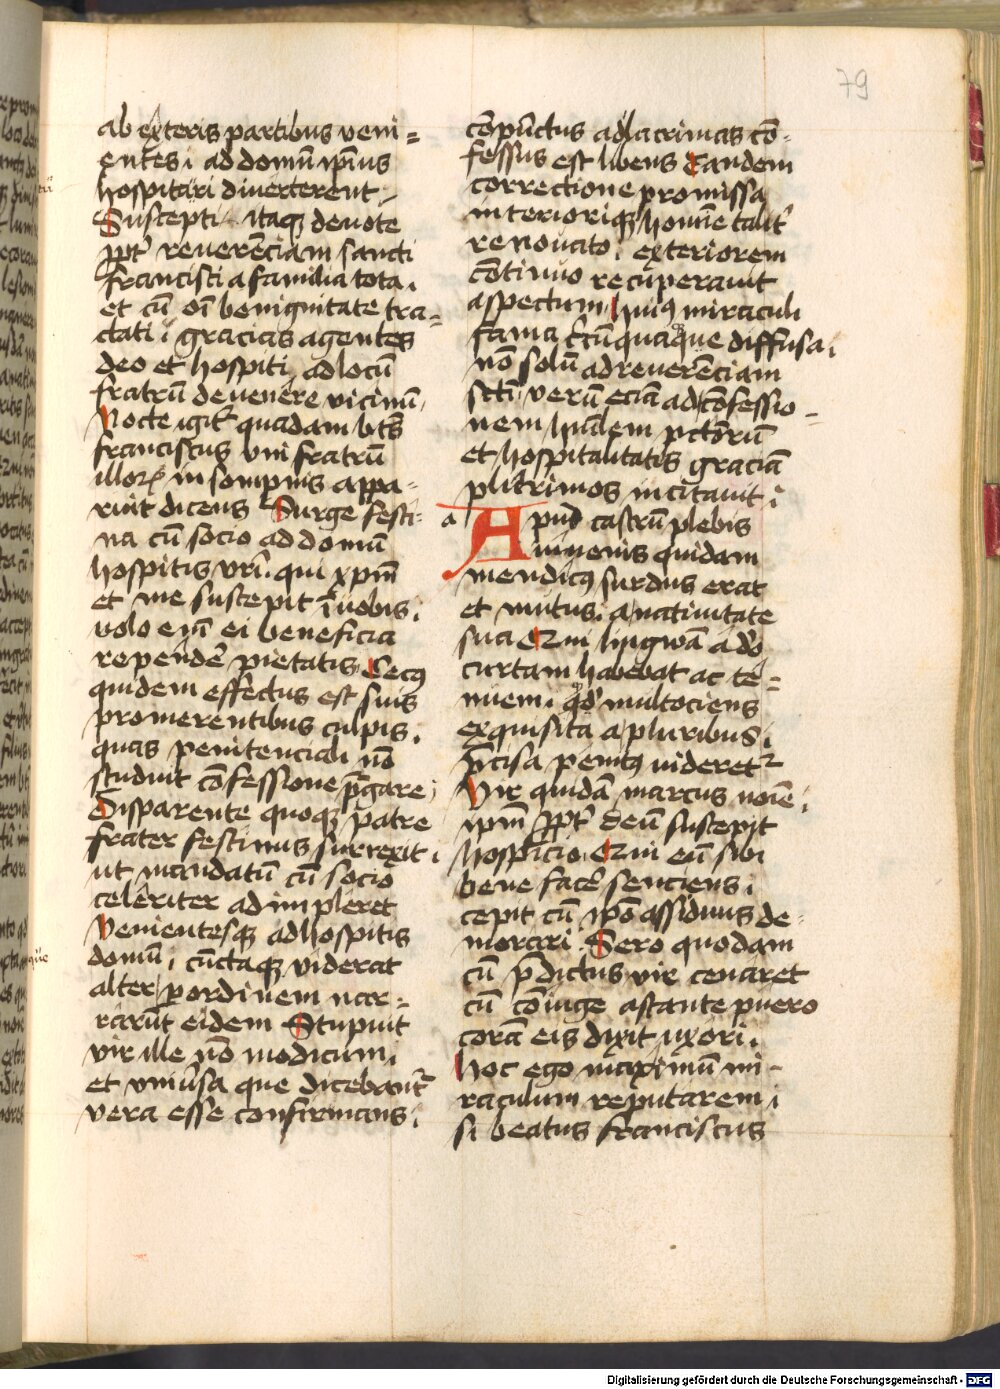 79
ab exteris partibus veni=
entes. ad domū ip̄ius
hospitari diverterent.
Suscepti itaqꝫ devote
ꝓpt̾ reuerēciam sancti
francisci a familia tota.
et cū oī benignitate tra=
ctati. gracias agentes
deo et hospiti. ad locū
fratrū devenere vicinū.
Nocte igit̾ quadam bt̄s
franciscus vni fratrū
illoꝝ in sompnis appa-
ruit dicens Surge festi-
na cū socio ad domū
hospitis vr̄i. qui xp̄m
et me suscepit ī vobis.
volo em̄ ei beneficia
rependē pietatis Cecꝰ
quidem effectus est suis
promerentibus culpis.
quas penitenciali nō
studuit cōfessione p̄gare
Disparente quoqꝫ patre
frater festinus surrexit.
ut mandatū cū socio
celeriter adimpleret
Venientesqꝫ ad hospitis
domū. cūctaqꝫ viderat
alter p ordinem nar=
rarūt eidem Stupuit
vir ille nō modicum.
et vniūsa que dicebant̾
vera esse confirmans.
cōpūctus ad lacrimas cō-
fessus est libens Tandem
correctione promissa
interioriqꝫ homīe talit̾
renouato. exteriorem
cōtinuo recuperauit
aspectum Huiꝰ miraculi
fama circūquaque diffusa.
nō solū ad reuerēciam
scti verū eciā ad cōfessio-
nem huīlem pctōrū
et hospitalitatis graciā
plurimos incitauit.
a
Apud castrū plebis
Iuuenis quidam
mendicꝰ surdus erat
et mutus. a natiuitate
sua Qui lingwā adeo
curtam habebat ac te=
nuem. qd̄ multociens
exquisita a pluribus.
p̄cisa penitꝰ videret̾
Vir quidā marcus noīe.
ipm̄ ꝓpt̾ deū suscepit
hospicio. Qui eū sibi
bene facē senciens.
cepit cū ip̄o assiduus de-
morari. Sero quodam
cū p̄dictus vir cenaret
cū cōiuge astante puero
corā eis dixit uxori.
Hoc ego maximū mi-
raculum reputarem.
si beatus franciscus
Digitalisierung gefördert durch die Deutsche Forschungsgemeinschaft - DFG